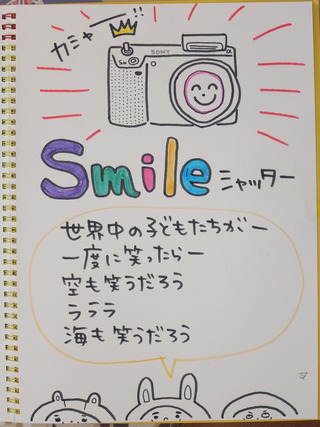 カミャー!!
SONY
α
Smile シャッター
世界中の子どもたちがー
一度に笑ったらー
空も笑うだろう
ラララ
海も笑うだろう